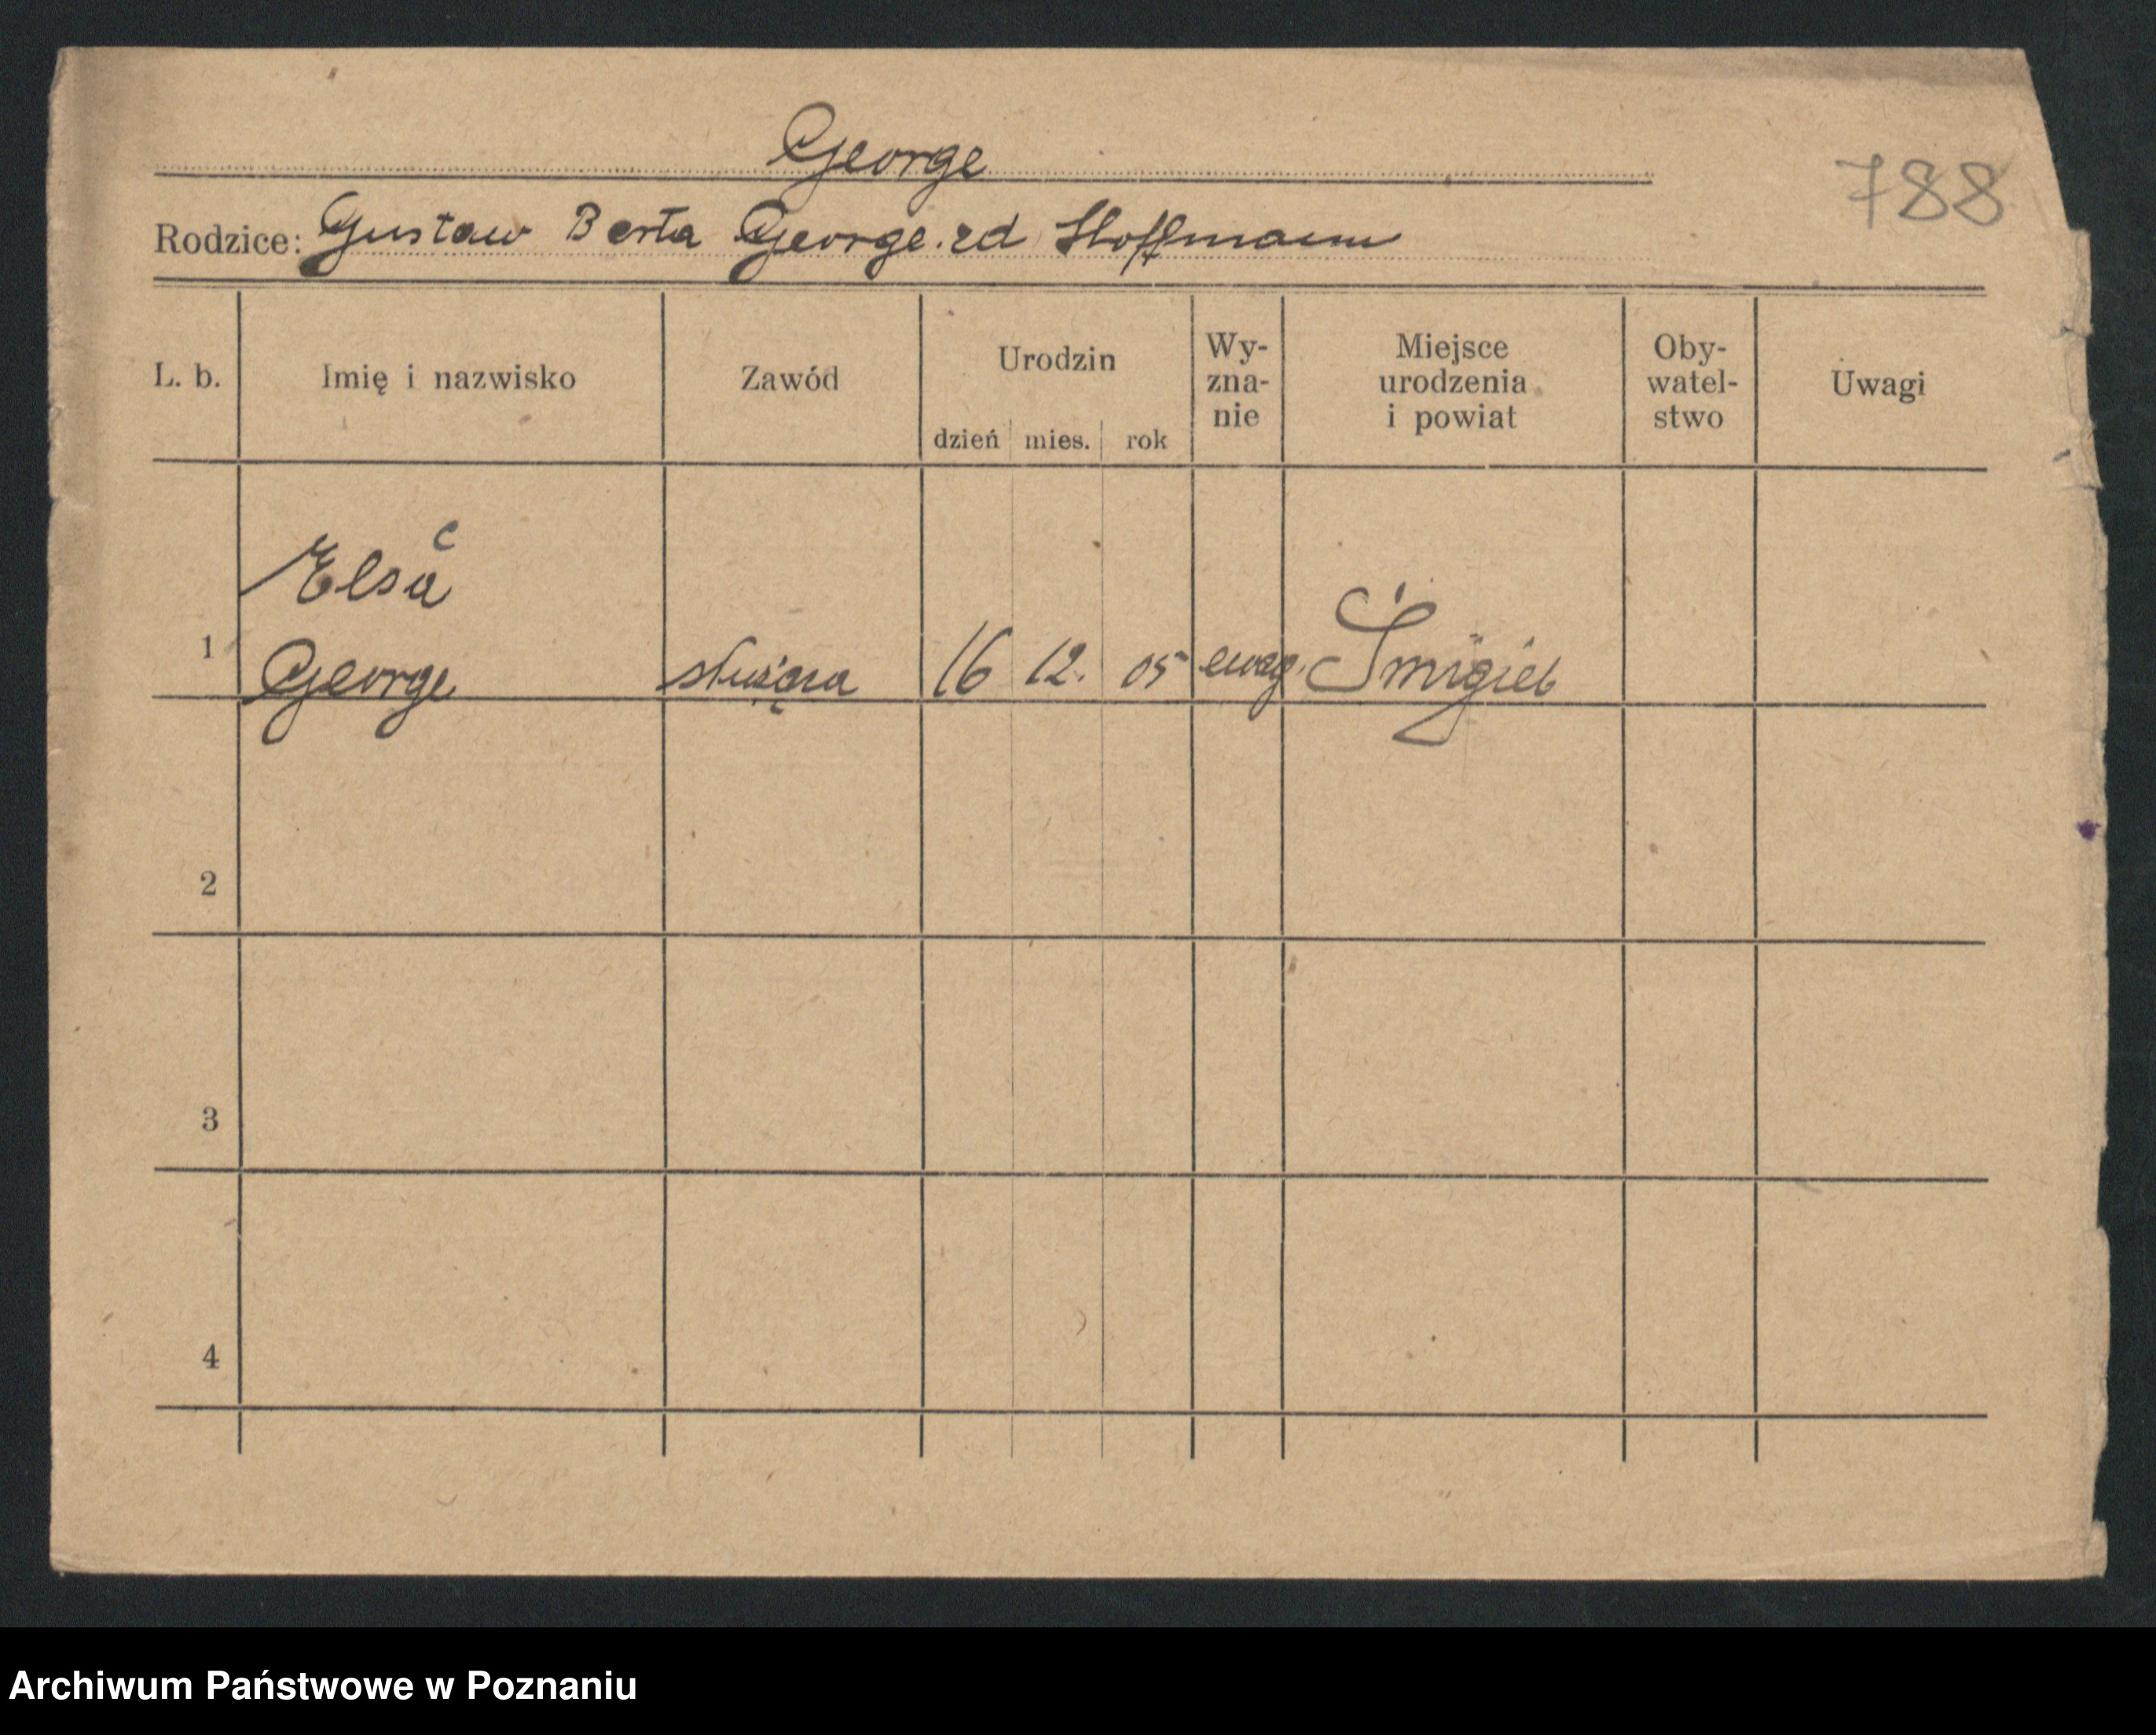 George
788
Rodzice: Gustaw Berta George. zd Hoffmann
L. b. Imię i nazwisko Zawód Urodzin dzień mies. rok Wy-zna-nie Miejsce urodzenia i powiat Oby-watel-stwo Uwagi
Elsa
1 George służąca 16 12. 05 ewag. Śmigiel
2
3
4
Archiwum Państwowe w Poznaniu